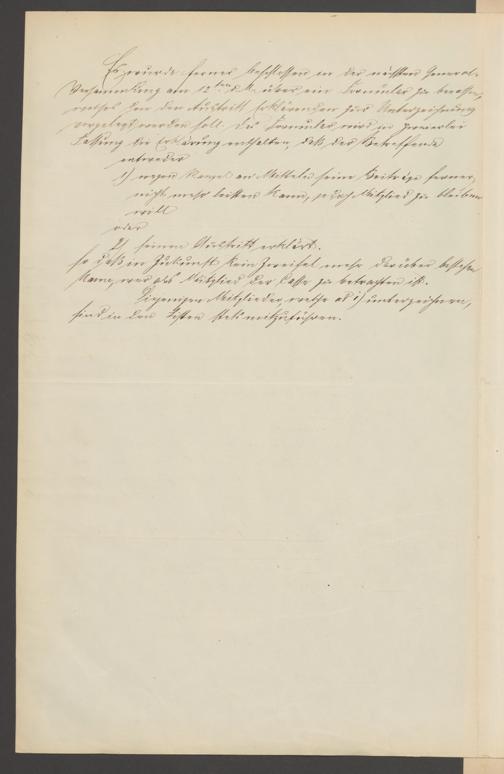 Es wurde ferner beschlossen in der nächsten General-
Versammlung am 12ten d. M. über ein Formular zu berathen,
welches von den Austritt Erklärenden zur Unterzeichnung
vorgelegt werden soll. Das Formular wird in zweierlei
Fassung die Erklärung enthalten, daß der Betreffende
entweder
1) wegen Mangel an Mitteln seine Beiträge ferner
nicht mehr leisten kann, jedoch Mitglied zu bleiben
will
oder
2) seinen Austritt erklärt.
so daß in Zukunft kein Zweifel mehr darüber bestehen
kann, wer als Mitglied der Casse zu betrachten ist.
Diejenigen Mitglieder welche ad 1) unterzeichnen,
sind in den Listen stets mitzuführen.